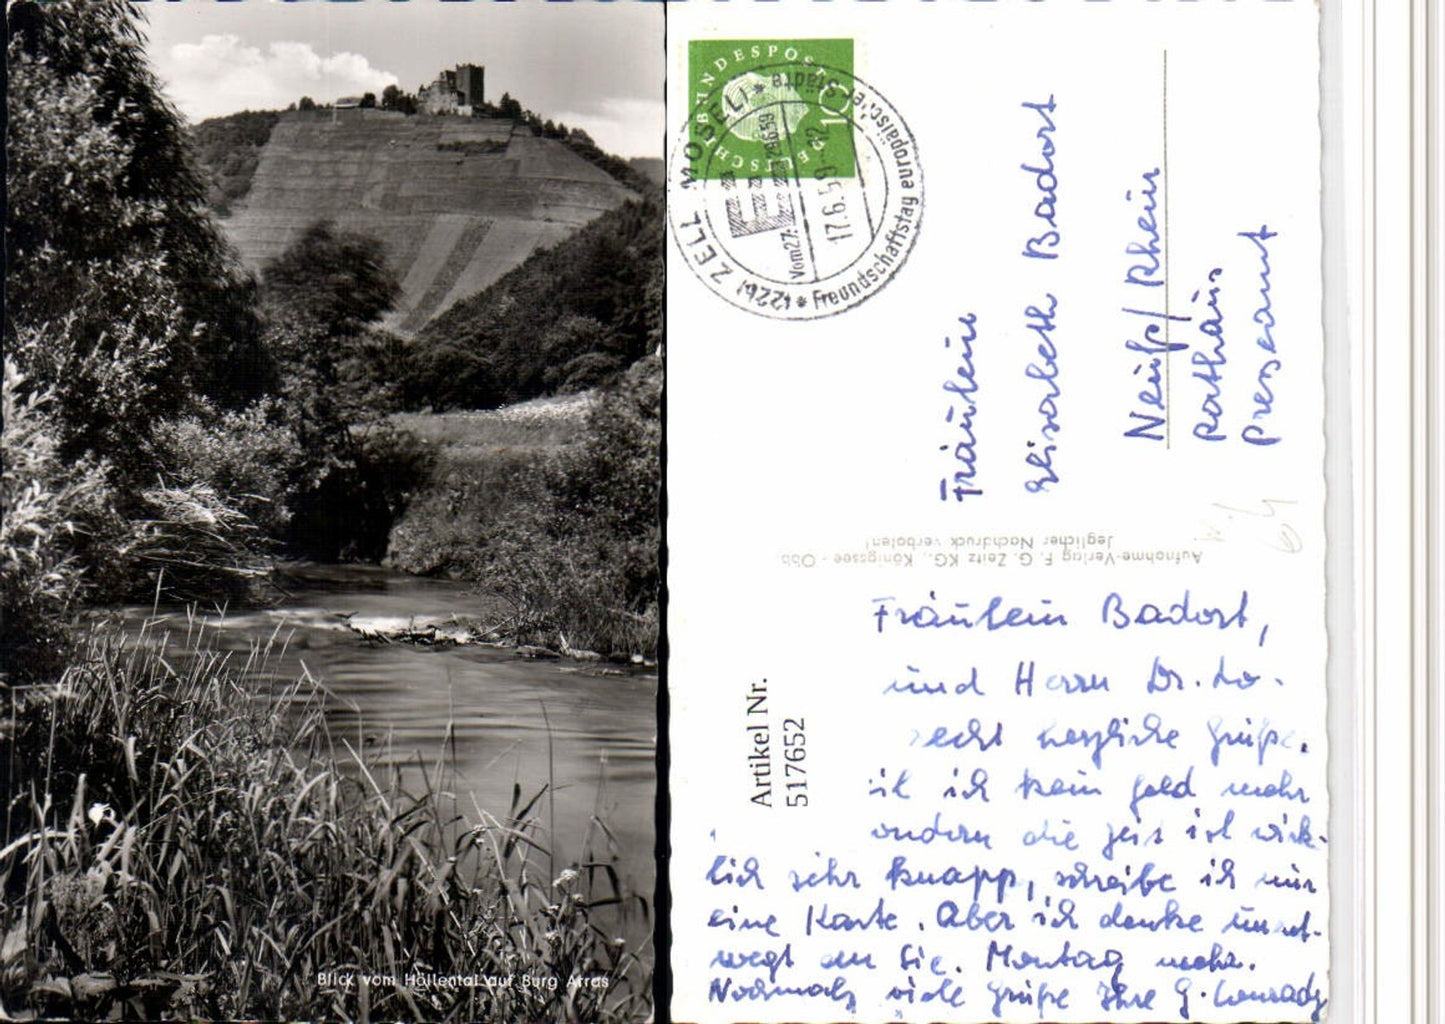 Blick vom Höllental auf Burg Arras
DEUTSCHE BUNDESPOST
10
(22b) ZELL (MOSEL)
Freundschaftstag europäischer Städte
Vom 27.
28.6.59
17.6.59
Fräulein
Elisabeth Badort
Neuß/Rhein
Rathaus
Presseamt
Aufnahme-Verlag F. G. Zeitz KG., Königssee - Obb.
Jeglicher Nachdruck verboten!
Artikel Nr.
517652
Fräulein Badort,
und Herrn Dr. Lo-
recht herzliche Grüße.
ich kein Geld mehr
sondern die Zeit ist wirk-
lich sehr knapp, schreibe ich nur
eine Karte. Aber ich denke unent-
wegt an Sie. Montag mehr.
Nochmals viele Grüße Ihre G. Conrady